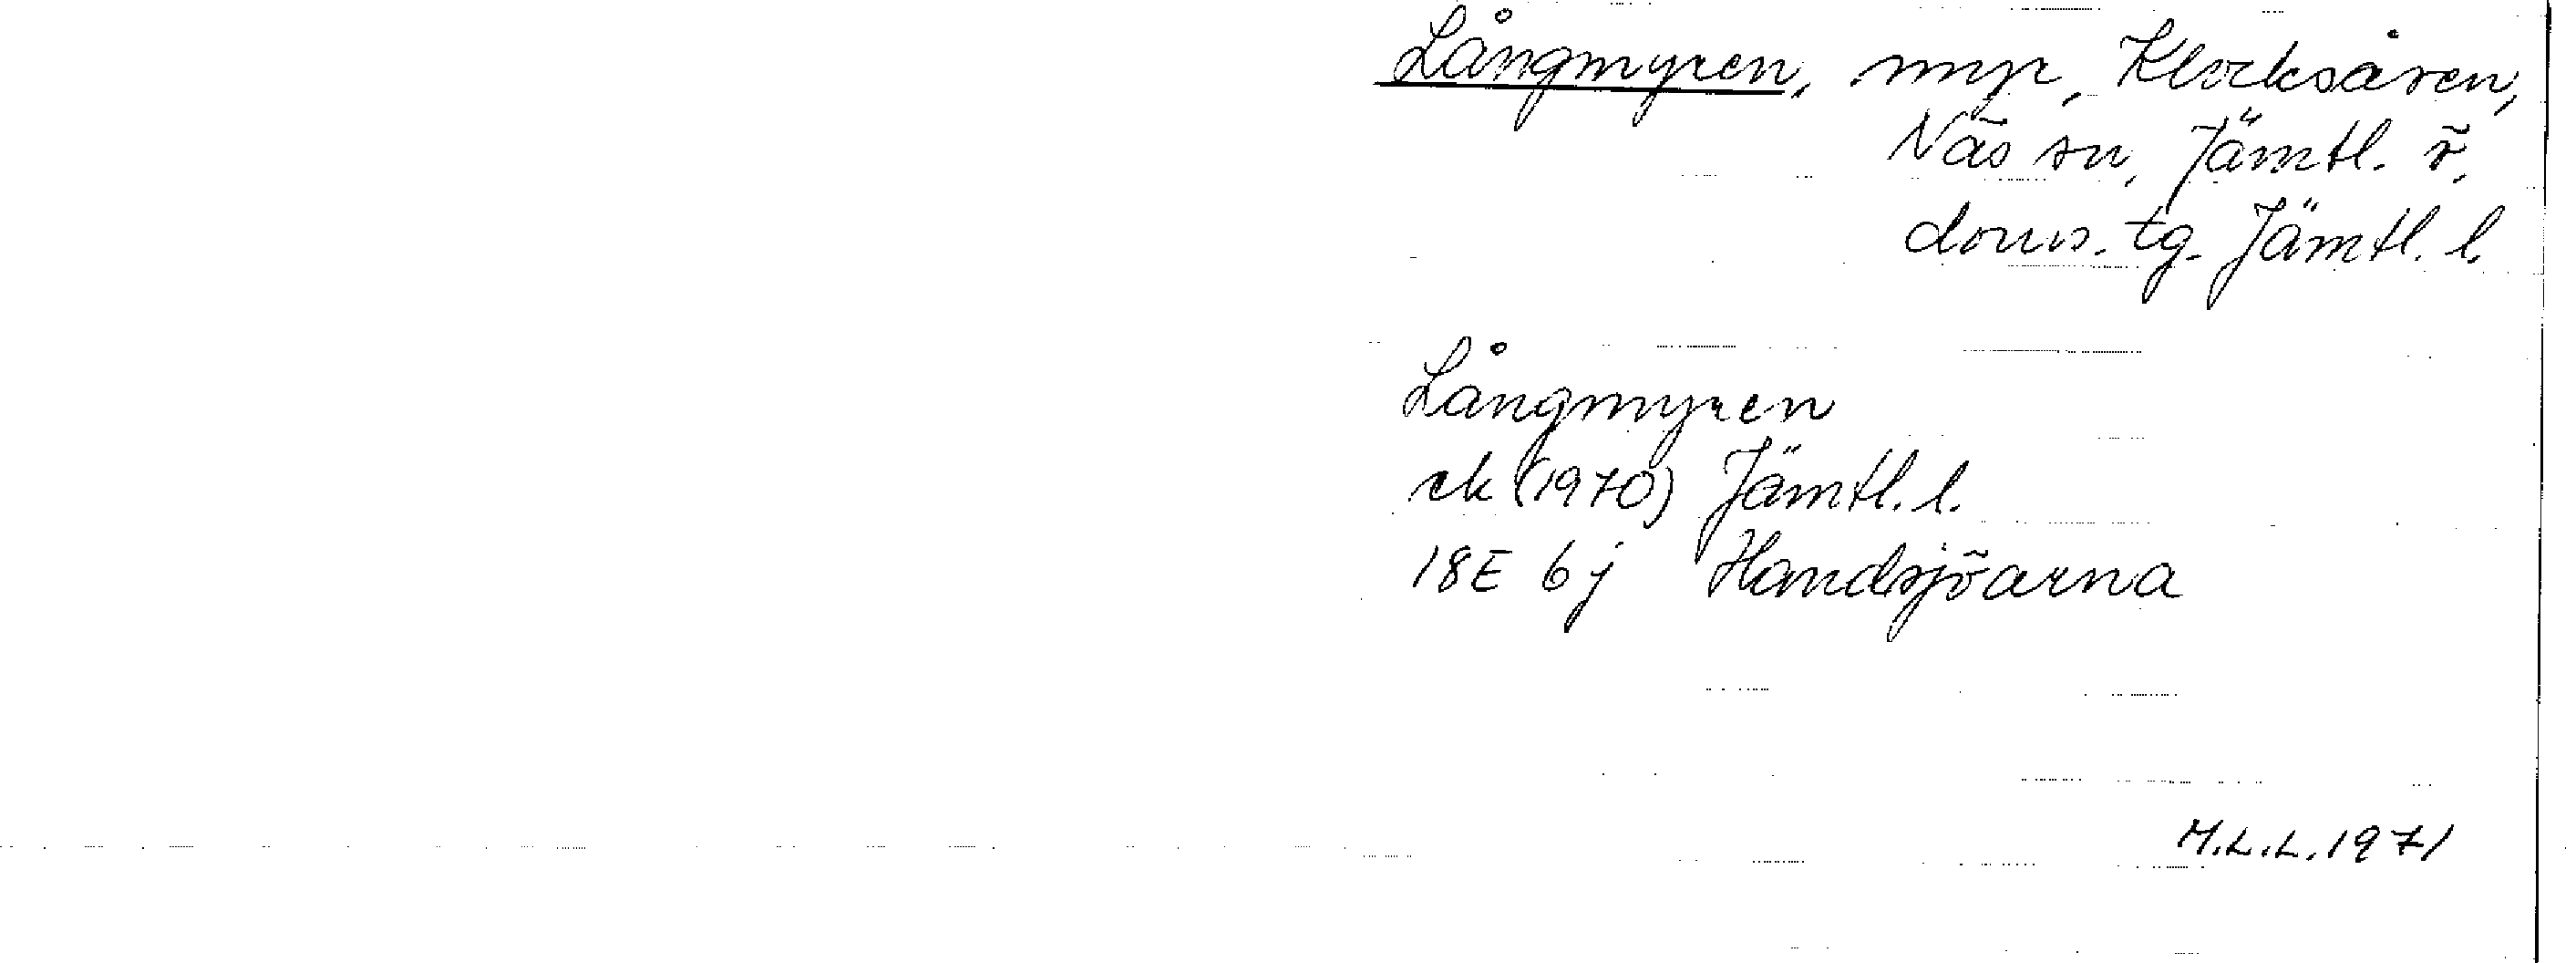 Långmyren, myr, Klocksåsen,
Näs sn, Jämtl. ö.
doms. tg. Jämtl. l.
Långmyren
ek (1970) Jämtl. l.
18E 6j Handsjöarna
M.L.L. 1971